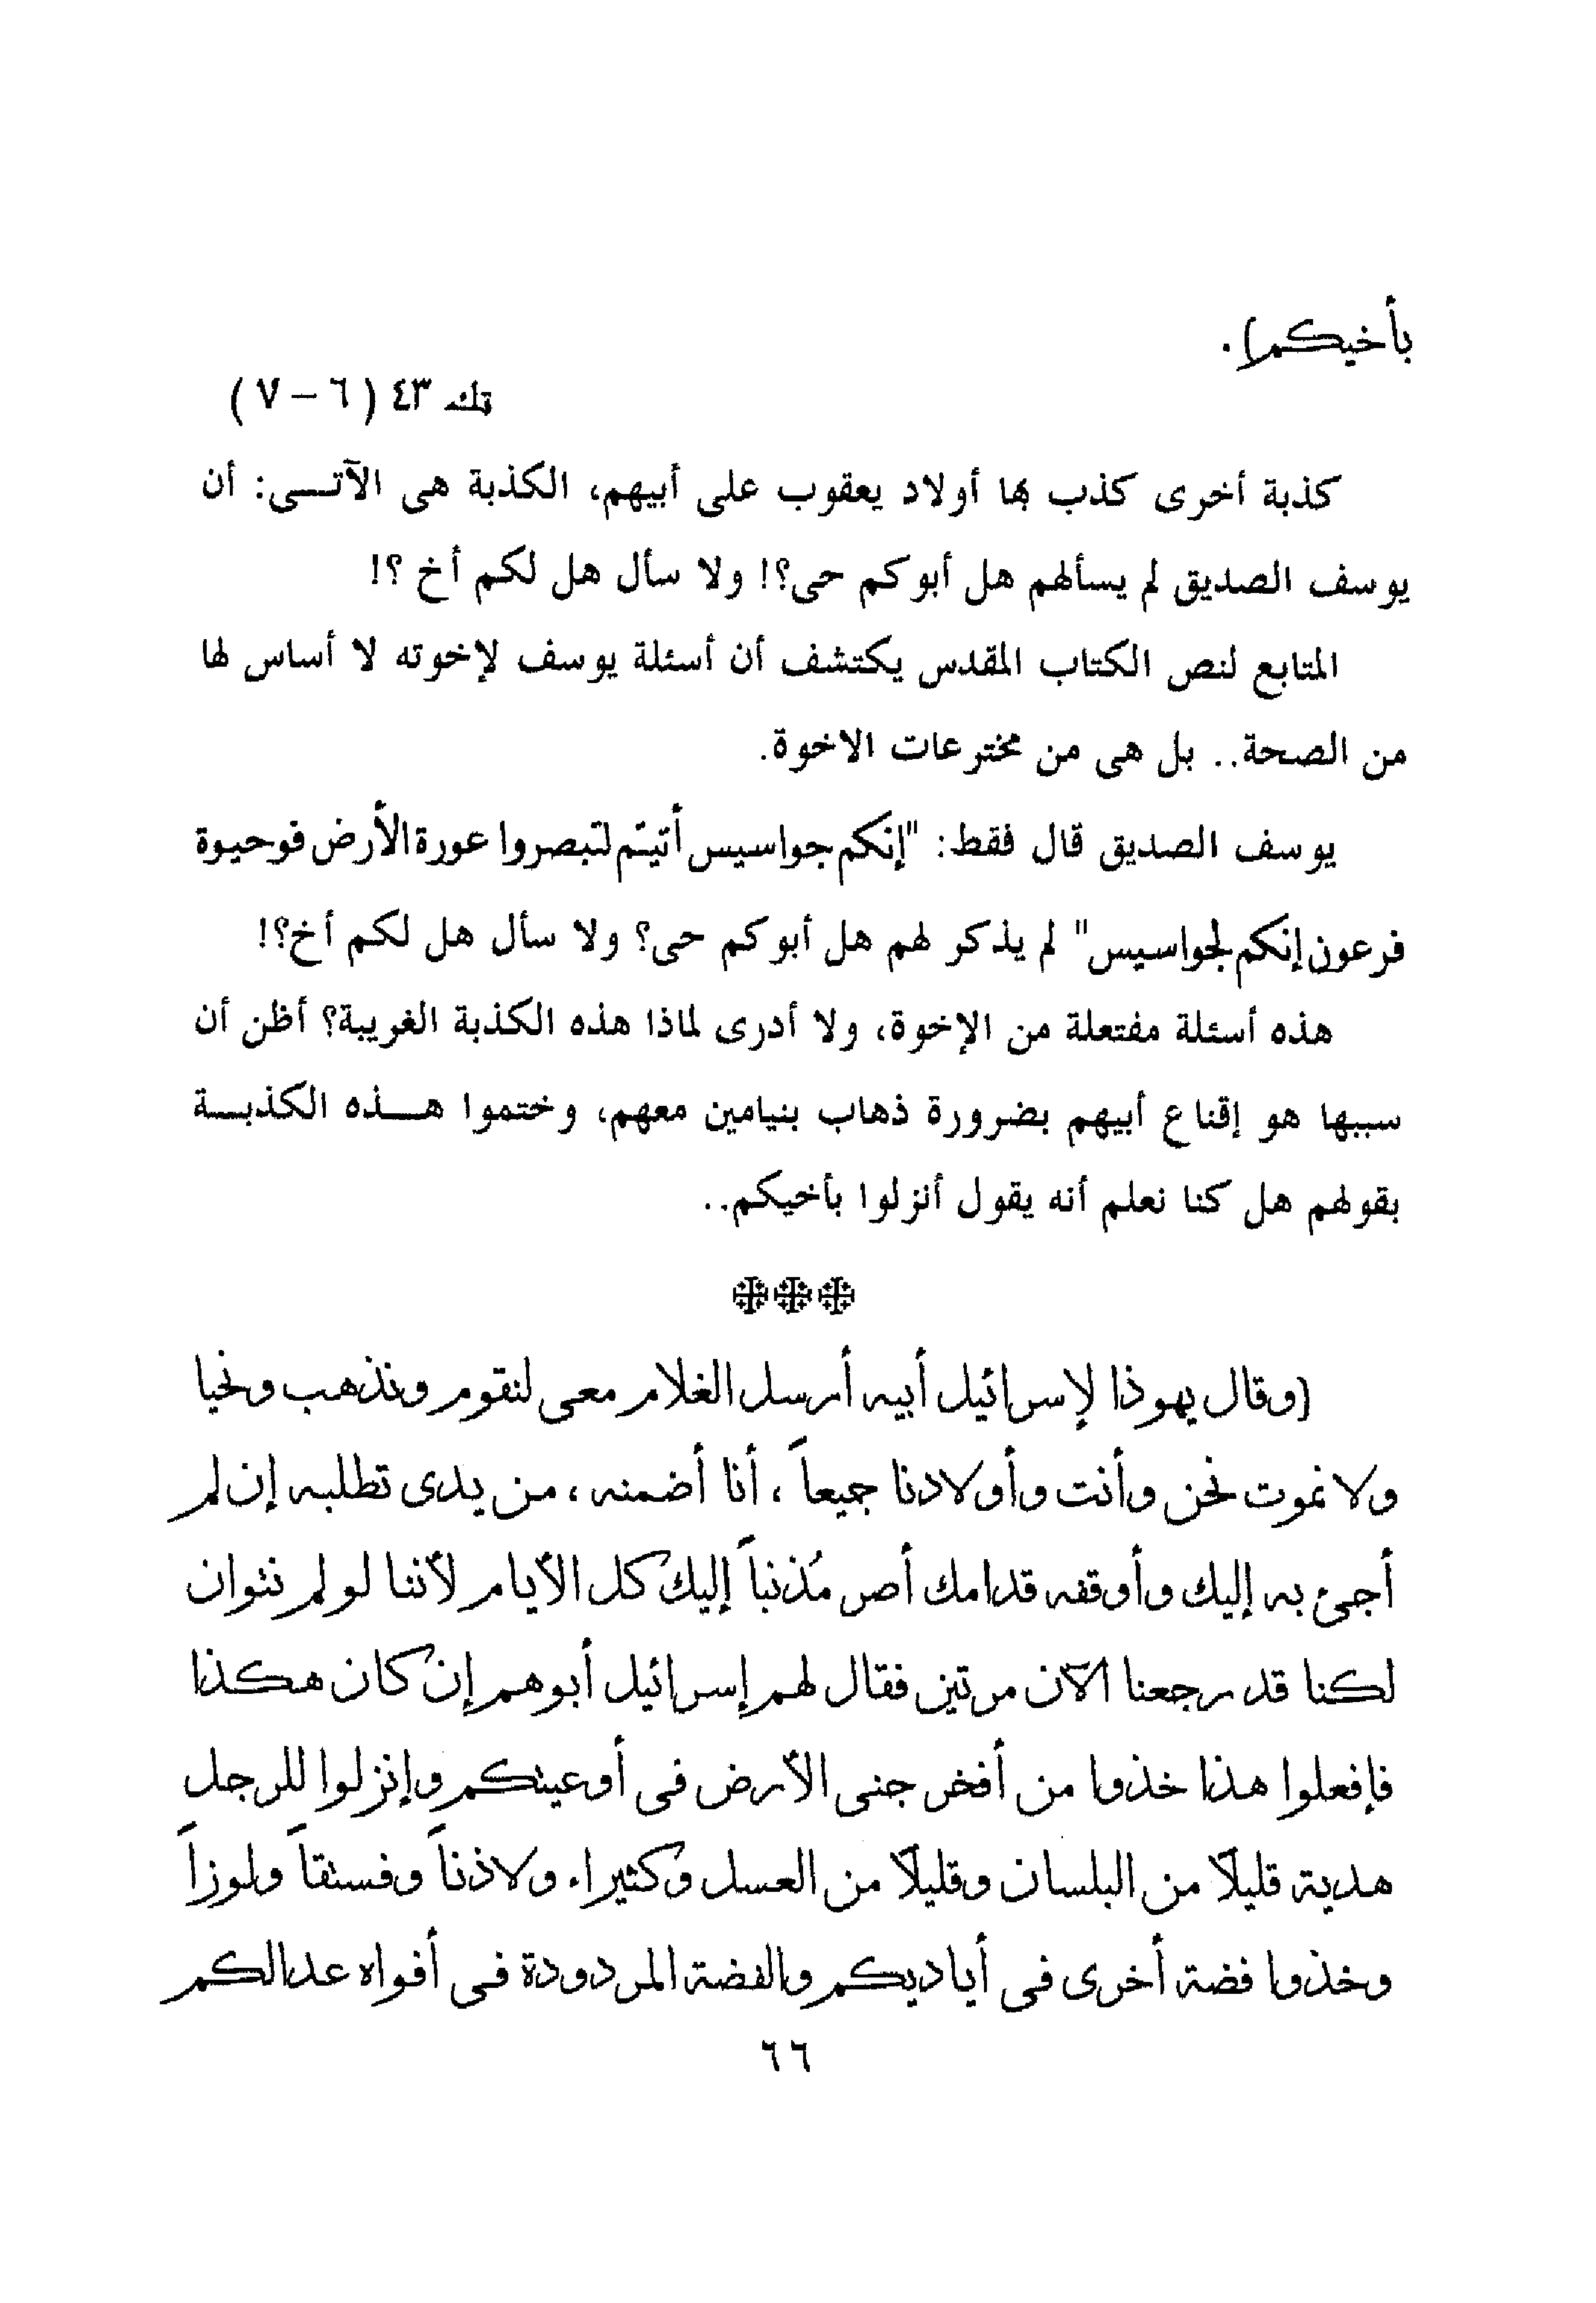 بأخيكم).
تك ٤٣ (٦ – ٧)
كذبة أخرى كذب بها أولاد يعقوب على أبيهم، الكذبة هى الآتــى: أن
يوسف الصديق لم يسألهم هل أبوكم حى؟! ولا سأل هل لكم أخ ؟!
المتابع لنص الكتاب المقدس يكتشف أن أسئلة يوسف لإخوته لا أساس لها
من الصحة.. بل هى من مخترعات الاخوة.
يوسف الصديق قال فقط: "إنكم جواسيس أتيتم لتبصروا عورة الأرض فوحيوة
فرعون إنكم لجواسيس" لم يذكر لهم هل أبوكم حى؟ ولا سأل هل لكم أخ؟!
هذه أسئلة مفتعلة من الإخوة، ولا أدرى لماذا هذه الكذبة الغريبة؟ أظن أن
سببها هو إقناع أبيهم بضرورة ذهاب بنيامين معهم، وختموا هــذه الكذبــة
بقولهم هل كنا نعلم أنه يقول أنزلوا بأخيكم..
(وقال يهوذا لإسرائيل أبيه أرسل الغلام معى لنقوم ونذهب ونحيا
ولا نموت نحن وأنت وأولادنا جميعاً ، أنا أضمنه ، من يدى تطلبه إن لم
أجئ به إليك وأوقفه قدامك أصر مُذنباً إليك كل الأيام لأننا لو لم نتوان
لكنا قد رجعنا الآن مرتين فقال لهم إسرائيل أبوهم إن كان هكذا
فإفعلوا هذا خذوا من أفخر جنى الأرض فى أوعيتكم وإنزلوا للرجل
هدية قليلاً من البلسان وقليلاً من العسل وكثيراء ولاذناً وفستقاً ولوزاً
وخذوا فضة أخرى فى أياديكم والفضة المردودة فى أفواه عدالكم
٦٦